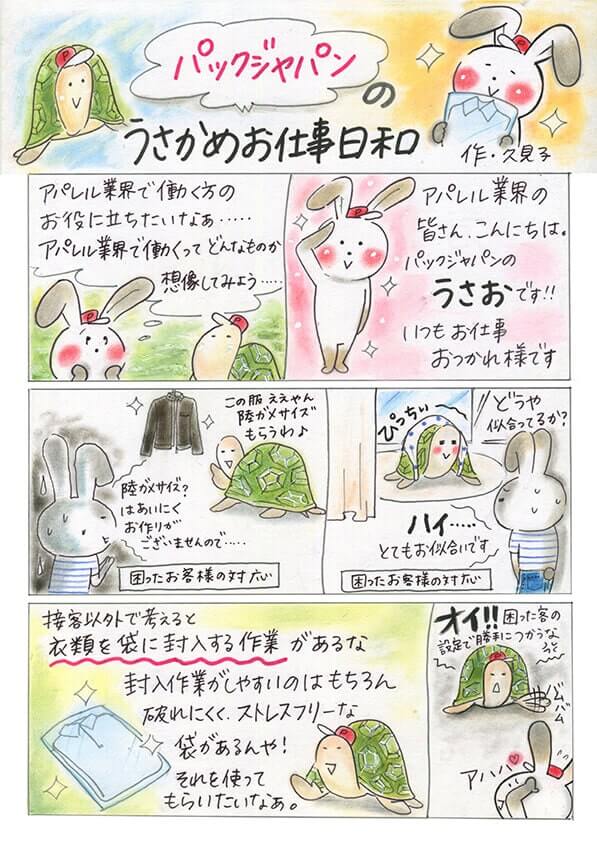 パックジャパン
の
うさかめお仕事日和
作・久見子
アパレル業界の
皆さん、こんにちは。
パックジャパンの
うさおです!!
いつもお仕事
おつかれ様です
アパレル業界で働く方の
お役に立ちたいなぁ・・・・・
アパレル業界で働くってどんなものか
想像してみよう・・・・・
P
P
どうや
似合ってるか?
ぴっちぃ
ハイ・・・・・
とてもお似合いです
困ったお客様の対応
この服ええやん
陸ガメサイズ
もらうわ♪
陸ガメサイズ?
はあいにく
お作りが
ございませんので・・・・・
困ったお客様の対応
接客以外で考えると
衣類を袋に封入する作業があるな
封入作業がしやすいのはもちろん
破れにくく、ストレスフリーな
袋があるんや!
それを使って
もらいたいなぁ。
オイ!!困った客の
設定で勝手につかうな
バム
バム
アハハ